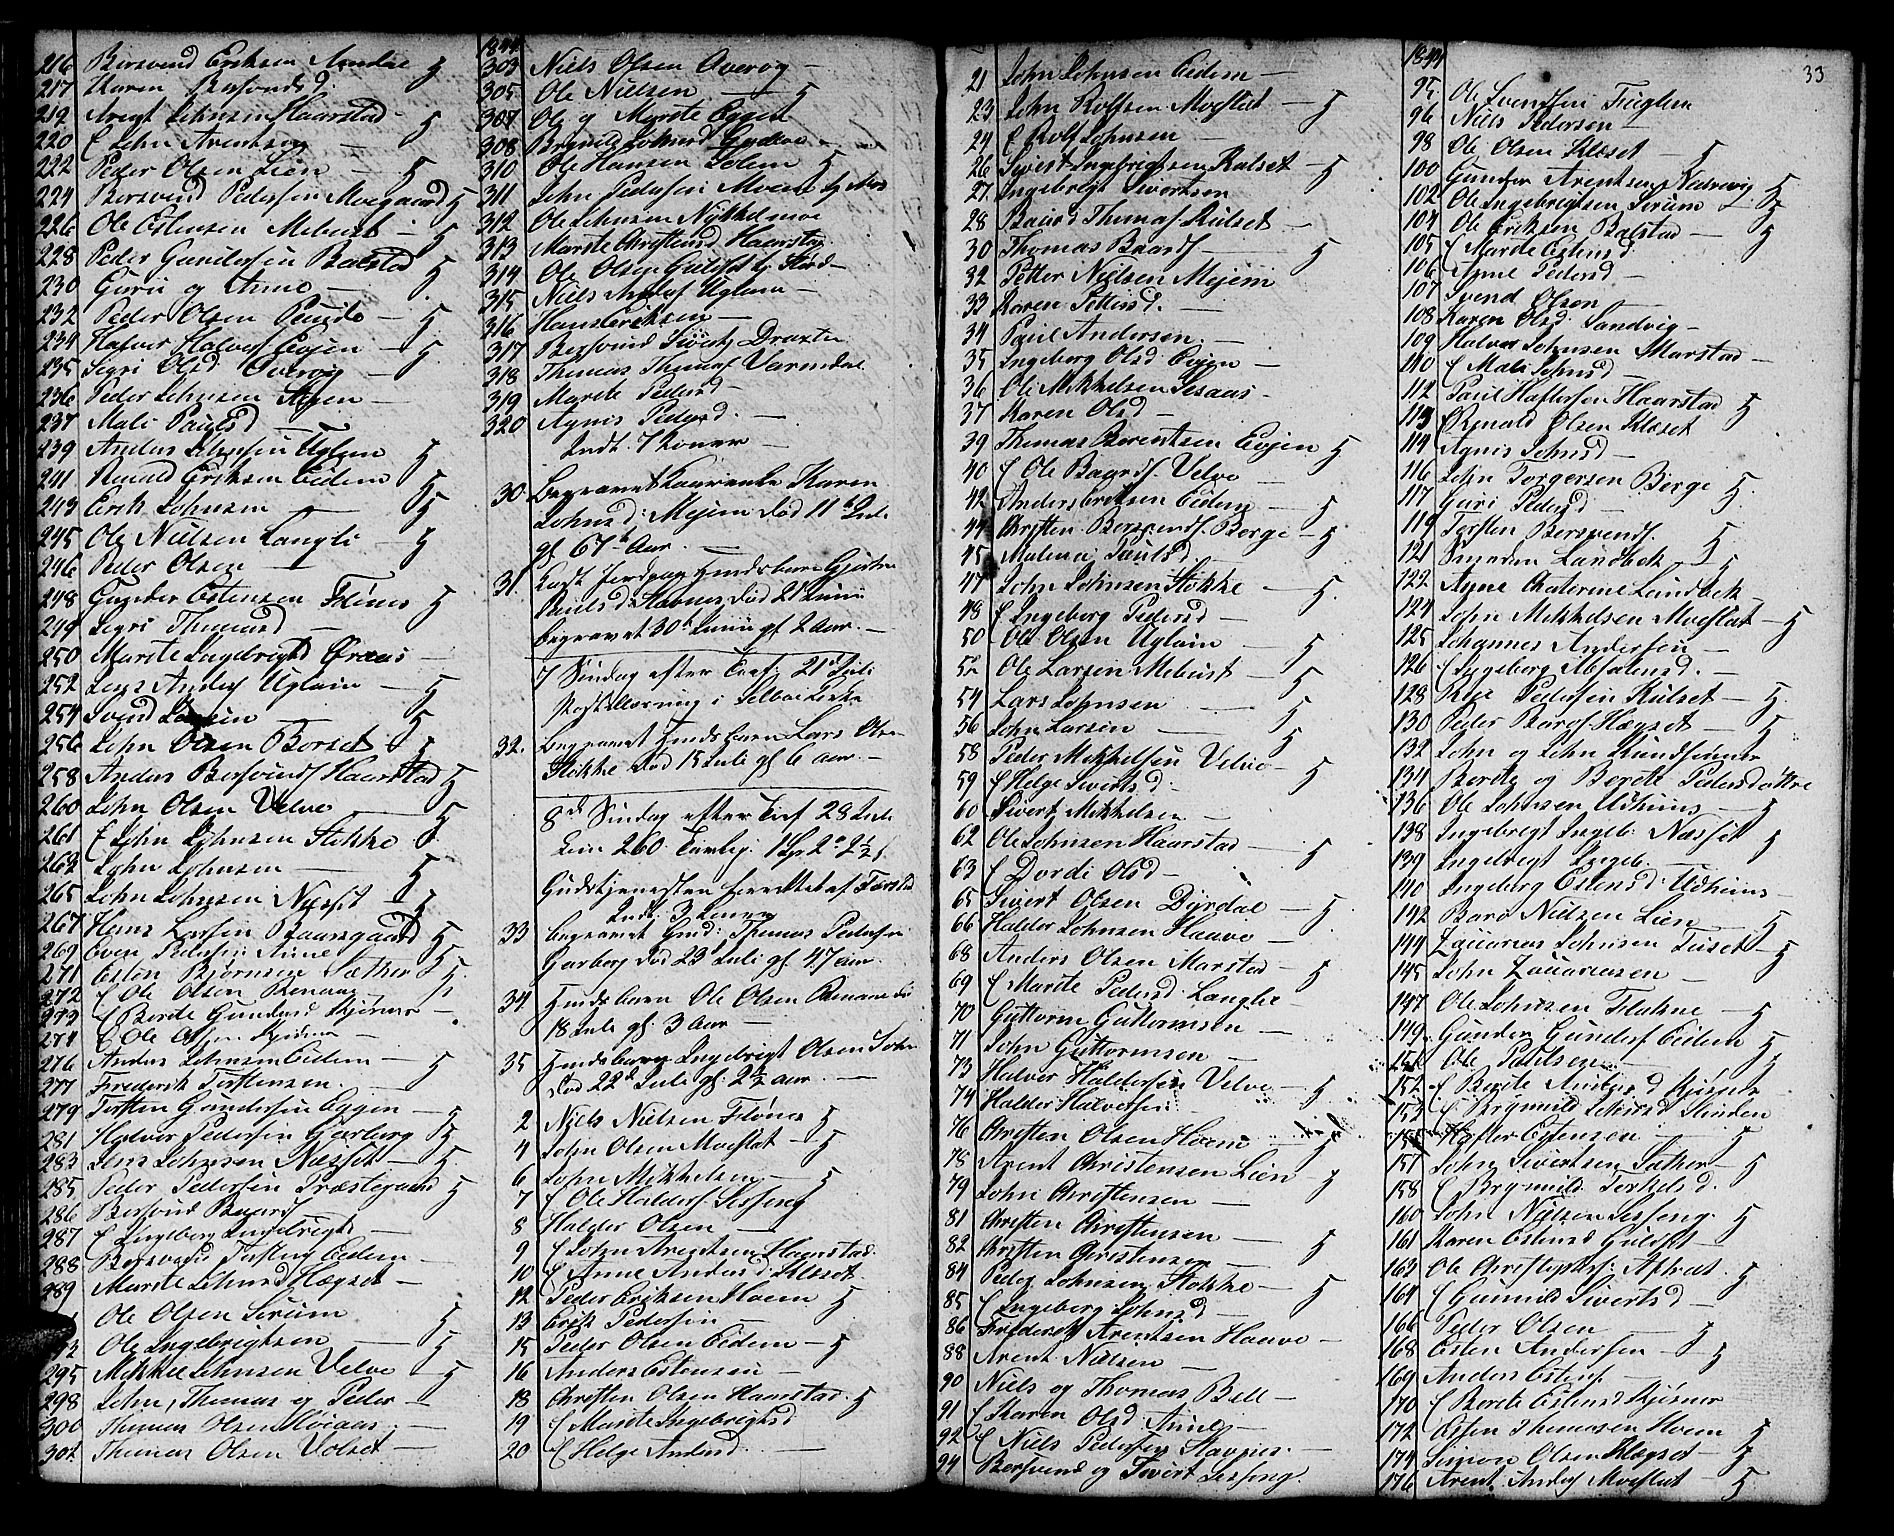 216 Bersvend Eriksen Amdal
217 Karen Bersvendsd.
219 Arngt Johnsen Haarstad
220 f John Arentsen
222 Peder Olsen Lien
224 Bersvend Pedersen Moegaard
226 Ole Estensen Mebust
228 Peder Gundersen Balstad
230 Guru og Anne
232 Peder Olsen
234 Halvor Halvors Evjen
235 Sigri Olsd Overvig
236 Peder Johnsen
237 Mali Paulsd
239 Anders Johnsen Uglem
241 Renald Eriksen Eidem
243 Erik Johnsen
245 Ole Nielsen Langli
246 Peder Olsen
248 Gunder Estensen Flönes
249 Sigri Thomasd
250 Marite Ingebrigtsd
252 Jens Andersf Uglem
254 Svend
256 John Olsen Borset
258 Anders Bersvendsf Haarstad
260 John Olsen Velve
261 f John Johnsen Stokke
263 John Johnsen
265 John Johnsen Næsset
267 Hans Larsen Baarsgaard
269 Even Pedersen Amel
271 Esten Bjørnsen Sæther
272 f Ole Olsen Renaae
273 f Berete Gundersd Kjösnes
274 f Ole Olsen
276 Anders Johnsen Eidem
277 Frederik Torstensen
279 Torsten Gundersen Eggen
281 Halvor Pedersen Garberg
283 Jens Johnsen Næsset
285 Peder Pedersen Præstegaard
286 Bersvend Baardsf
287 f Ingeberg Ingebrigtsd
288 Bersvend Eidem
289 Marite Johnsd Hægset
Ole Olsen Serum
Ole Ingebrigtsen
295 Mikkel Johnsen Velve
298 John, Thomas og Peder
300 Thomas Olsen Höiaas
302 Thomas Olsen Volset
1844
303 Niels Olsen Overvig
305 Ole Nielsen
307 Ole og Marite Eggen
308 Brynild Johnsd
310 Ole Hansen Solem
311 John Pedersen Moen
312 Ole Johnsen Nykkelmoe
313 Marite Christensd Haarstad
314 Ole Olsen Gulset
315 Niels Andersf Uglem
316 Hans Eriksen
317 Bersvend Draxten
318 Thomas Thomasf Varmdal
319 Marite Pedersd
320 Agnis Pedersd.
Indt. 7 Koner
30 Begravet Karen
Johnsd: Mejem död 11te Juli
gl. 67½ Aar.
31. Kast Jordpaa Huusbarn
Paulsd: Havnes död 21 Junii
begravet 30te Junii gl 2 Aar.
7 Sündag efter Tref: 21d Juli
i Selboe Kirke
32. Begravet Huusbarn Lars Olsen
Stokke död 15 Juli gl 6 aar.
8d Sündag efter Tref 28 Juli
260
Gudstjenesten forrettet af
Indt. 3 Koner
33 begravet Gmd: Thomas Pedersen
Garberg död 23 Juli gl. 47 aar.
34. Huusbarn Ole Olsen Renaae död
18 Juli gl. 3 Aar
35 Huusbarn Ingebrigt Olsen
död 22d Juli gl. 2½ aar.
2 Niels Nielsen Flönes
4 John Olsen Moeslet
6 John Mikkelsen
7 f Ole Haldorsf Sesseng
8 Haldor Olsen
9 f John Arentsen Haarstad.
10 f Anne Andersd: Klæset
12 Peder Eriksen Hoem
13 Erik Pedersen
15 Peder Olsen Eidem
16 Anders Estensen
18 Christen Olsen Haarstad.
19 f Marite Ingebrigtsd
20 f Helge Andersd.
21 John Johnsen Eidem
23 John Rolfsen Moeslet
24 f Rolf Johnsen
26 Sivert Ingebrigtsen Kulset
27. Ingebrigt Sivertsen
28 Baard Thomasf Kulset
30 Thomas Baardsf
32 Petter Nielsen Mejem
33 Karen Pettersd.
34 Paul Andersen
35 Ingeberg Olsd Evjen
36 Ole Mikkelsen Sesaas
37 Karen Olsd
39 Thomas Berentsen Evjen
40 f Ole Baardsf. Velve
42 Anders Eriksen Eidem
44 Christen Bersvendsf Berge
45 Malene Paulsd
47 John Johnsen Stokke
48 f Ingeborg Pedersd
50 Ole Olsen Uglem
52 Ole Larsen Mebust
54 Lars Johnsen
56 John Larsen
58 Peder Mikkelsen Velve
59 f Helge Sivertsd.
60 Sivert Mikkelsen
62 Ole Johnsen Haarstad
63 f Dordi Olsd
65 Sivert Olsen Dyrdal
66 Haldor Johnsen Haave
68 Anders Olsen Marstad
69 f Marite Pedersd. Langlie
70 Guttorm Guttormsen
71 John Guttormsen
73 Halvor Haldorsen Velve
74 Haldor Halvorsen
76 Christen Olsen Hoem
78 Arent Christensen Lien
79 John Christensen
81 Christen Christensen
82 Christen Christensen
84 Peder Johnsen Stokke
85 f Ingeberg Johnsd
86 Frederik Arentsen Haave
88 Arent Nielsen
90 Niels og Thomas Bell
91 f Karen Olsd Amel
92 f Niels Pedersen Havnes.
94 Bersvend og Sivert Sesseng.
1844
33
95 Ole Svendsen Fuglem
96 Niels Pedersen
98 Ole Olsen Klæset
100 Gunder Arentsen Nedrevig
102 Ole Ingebrigtsen Serum
104 Ole Eriksen Balstad
105 f Marite Estensd
106 Anne Pedersd
107 Svend Olsen
108 Karen Olsd Sandvig
109 Halvor Johnsen Marstad
110 f Mali Johnsd
112 Paul Haftorsen Haarstad
113 f Renald Olsen Klæset
114 Agnis Johnsd
116 John Torgersen Berge
117 Guri Pedersd
119 Torsten Bersvendsf.
121 Lundbek
122 Anne Catrine Lundbek
124 John Mikkelsen Moeslet
125 Johannes Andersen
126 f Ingeberg Absalonsd.
128 Pedersen Kulset
130 Peder Baardsf Hægset
132 John og John
134 Berite og Berit Pedersdöttre
136 Ole Johnsen Udhuus
138 Ingebrigt Ingeb: Næsset
139 Ingebrigt Ingeb.
140 Ingeberg Estensd: Udhuus
142 Baro Nielsen Lien
144 Zacarias Johnsen Tuset
145 John Zacariasen
147 Ole Johnsen Flakne
149 Gunder Gundersf Eidem
151 Ole Paulsen
152 f Berite Andersd Kjösnes
153 f Brynnild Johnsd
155 Hafter Estensen
157 John Sivertsen Sæther
158 f Brynnild Torkelsd.
160 John Nielsen Sesseng.
161 Karen Estensd Gulset
163 Ole Christophersf: Aftret
164 f Gunnild Sivertsd
166 Peder Olsen
168 Esten Andersen
169 Anders Estensf
170 f Berite Estensd Kjösnes
172 Esten Thomasen Hoem
174 Simon Olsen Klægset
176 Arent Andersf Moeslet